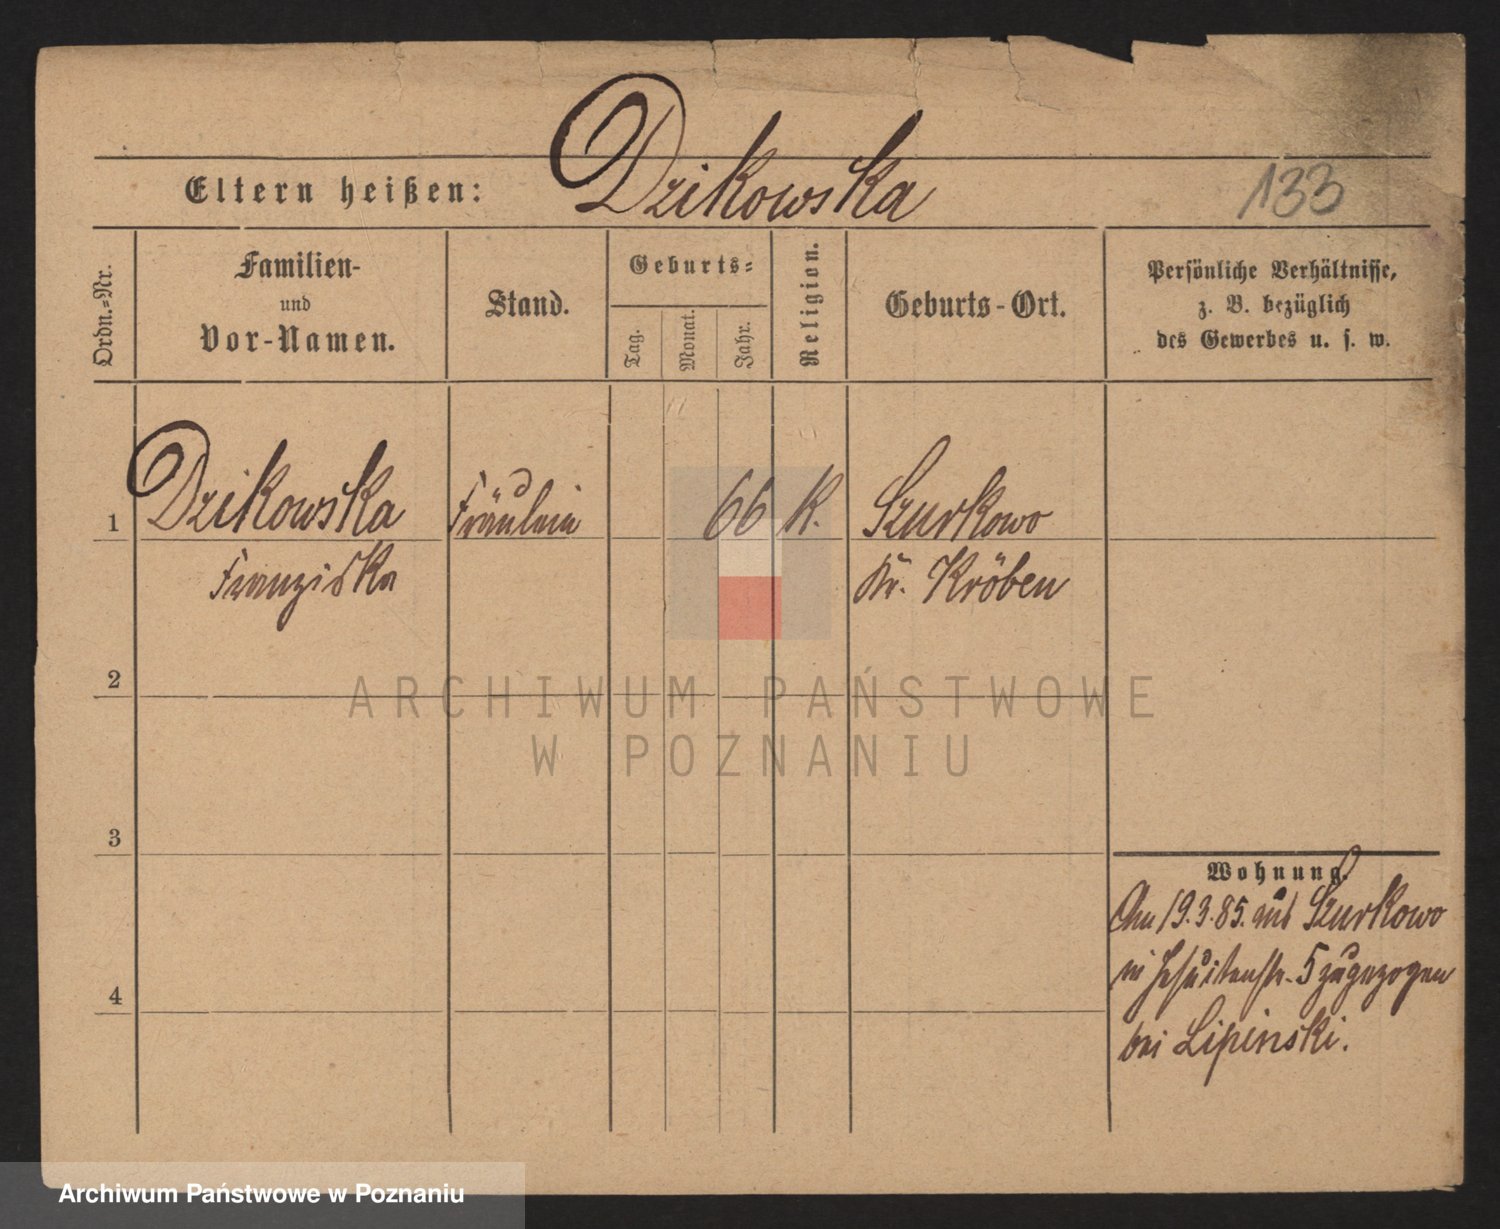 Dzikowska
Eltern heißen:
133
Ordn.-Nr.
Familien-
und
Vor-Namen.
Stand.
Geburts-
Tag.
Monat.
Jahr.
Religion.
Geburts-Ort.
Persönliche Verhältnisse,
z. B. bezüglich
des Gewerbes u. s. w.
1 Dzikowska Fräulein 66 K. Szurkowo
Franziska Kr. Kröben
2
ARCHIWUM PAŃSTWOWE
W POZNANIU
3
Wohnung.
Am 19.3.85. aus Szurkowo
n Jesuitenstr. 5 zugezogen
4
bei Lipinski.
Archiwum Państwowe w Poznaniu